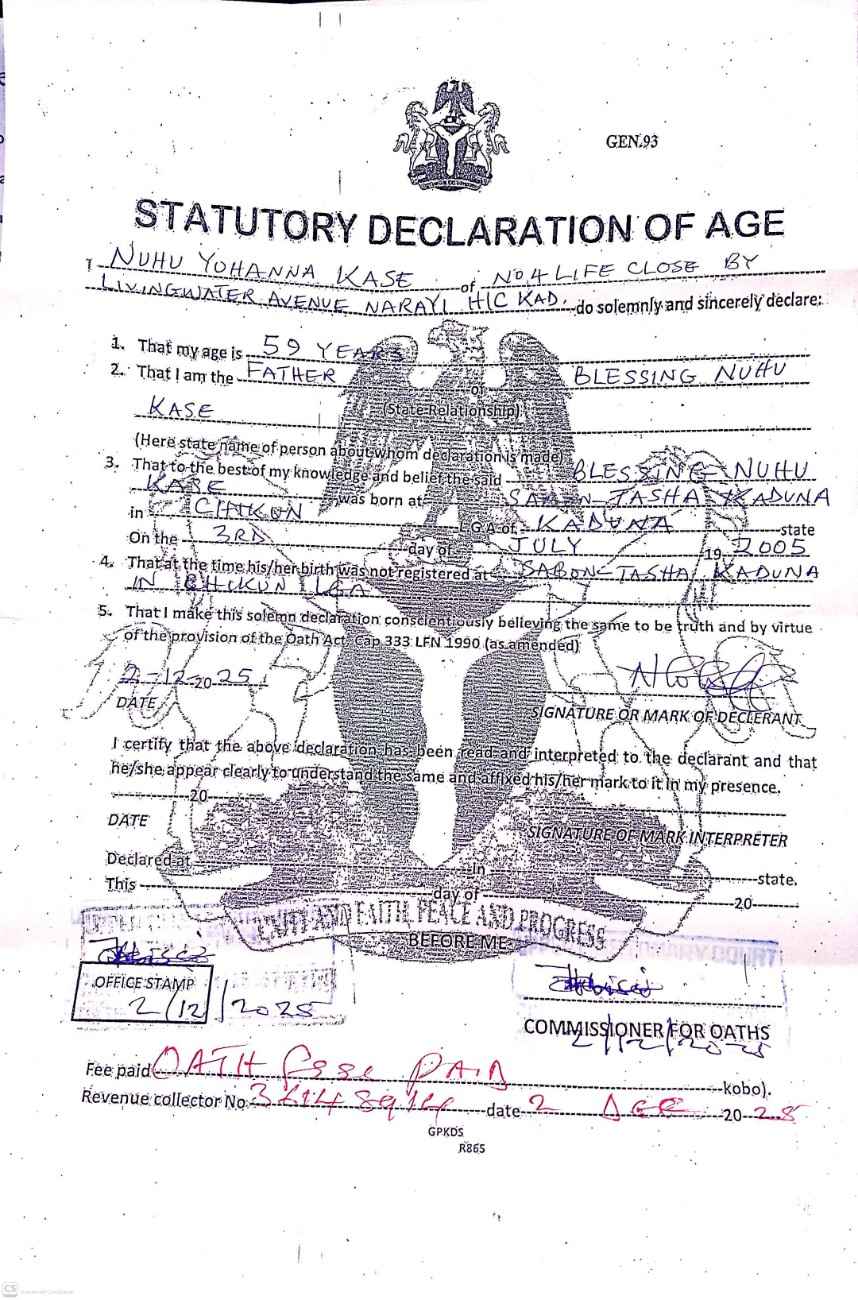 GEN.93
STATUTORY DECLARATION OF AGE
I NUHU YOHANNA KASE of NO 4 LIFE CLOSE BY
LIVINGWATER AVENUE NARAYI H/C KAD. do solemnly and sincerely declare:
1. That my age is 59 YEARS
2. That I am the FATHER of BLESSING NUHU
KASE (State Relationship)
(Here state name of person about whom declaration is made)
3. That to the best of my knowledge and belief the said BLESSING NUHU
KASE was born at SABON-TASHA KADUNA
in CHIKUN L.G.A of KADUNA state
On the 3RD day of JULY 19 2005
4. That at the time his/her birth was not registered at SABON-TASHA KADUNA
IN CHIKUN LGA
5. That I make this solemn declaration conscientiously believing the same to be truth and by virtue
of the provision of the Oath Act, Cap 333 LFN 1990 (as amended)
2-12-2025
DATE
SIGNATURE OR MARK OF DECLERANT
I certify that the above declaration has been read and interpreted to the declarant and that
he/she appear clearly to understand the same and affixed his/her mark to it in my presence.
20
DATE
SIGNATURE OF MARK INTERPRETER
Declared at in state.
This day of 20
UNITY AND FAITH, PEACE AND PROGRESS
BEFORE ME:
OFFICE STAMP
2/12/2025
COMMISSIONER FOR OATHS
2/12/2025
Fee paid OATH PAID kobo).
Revenue collector No date 2 20
GPKDS
R865
CS